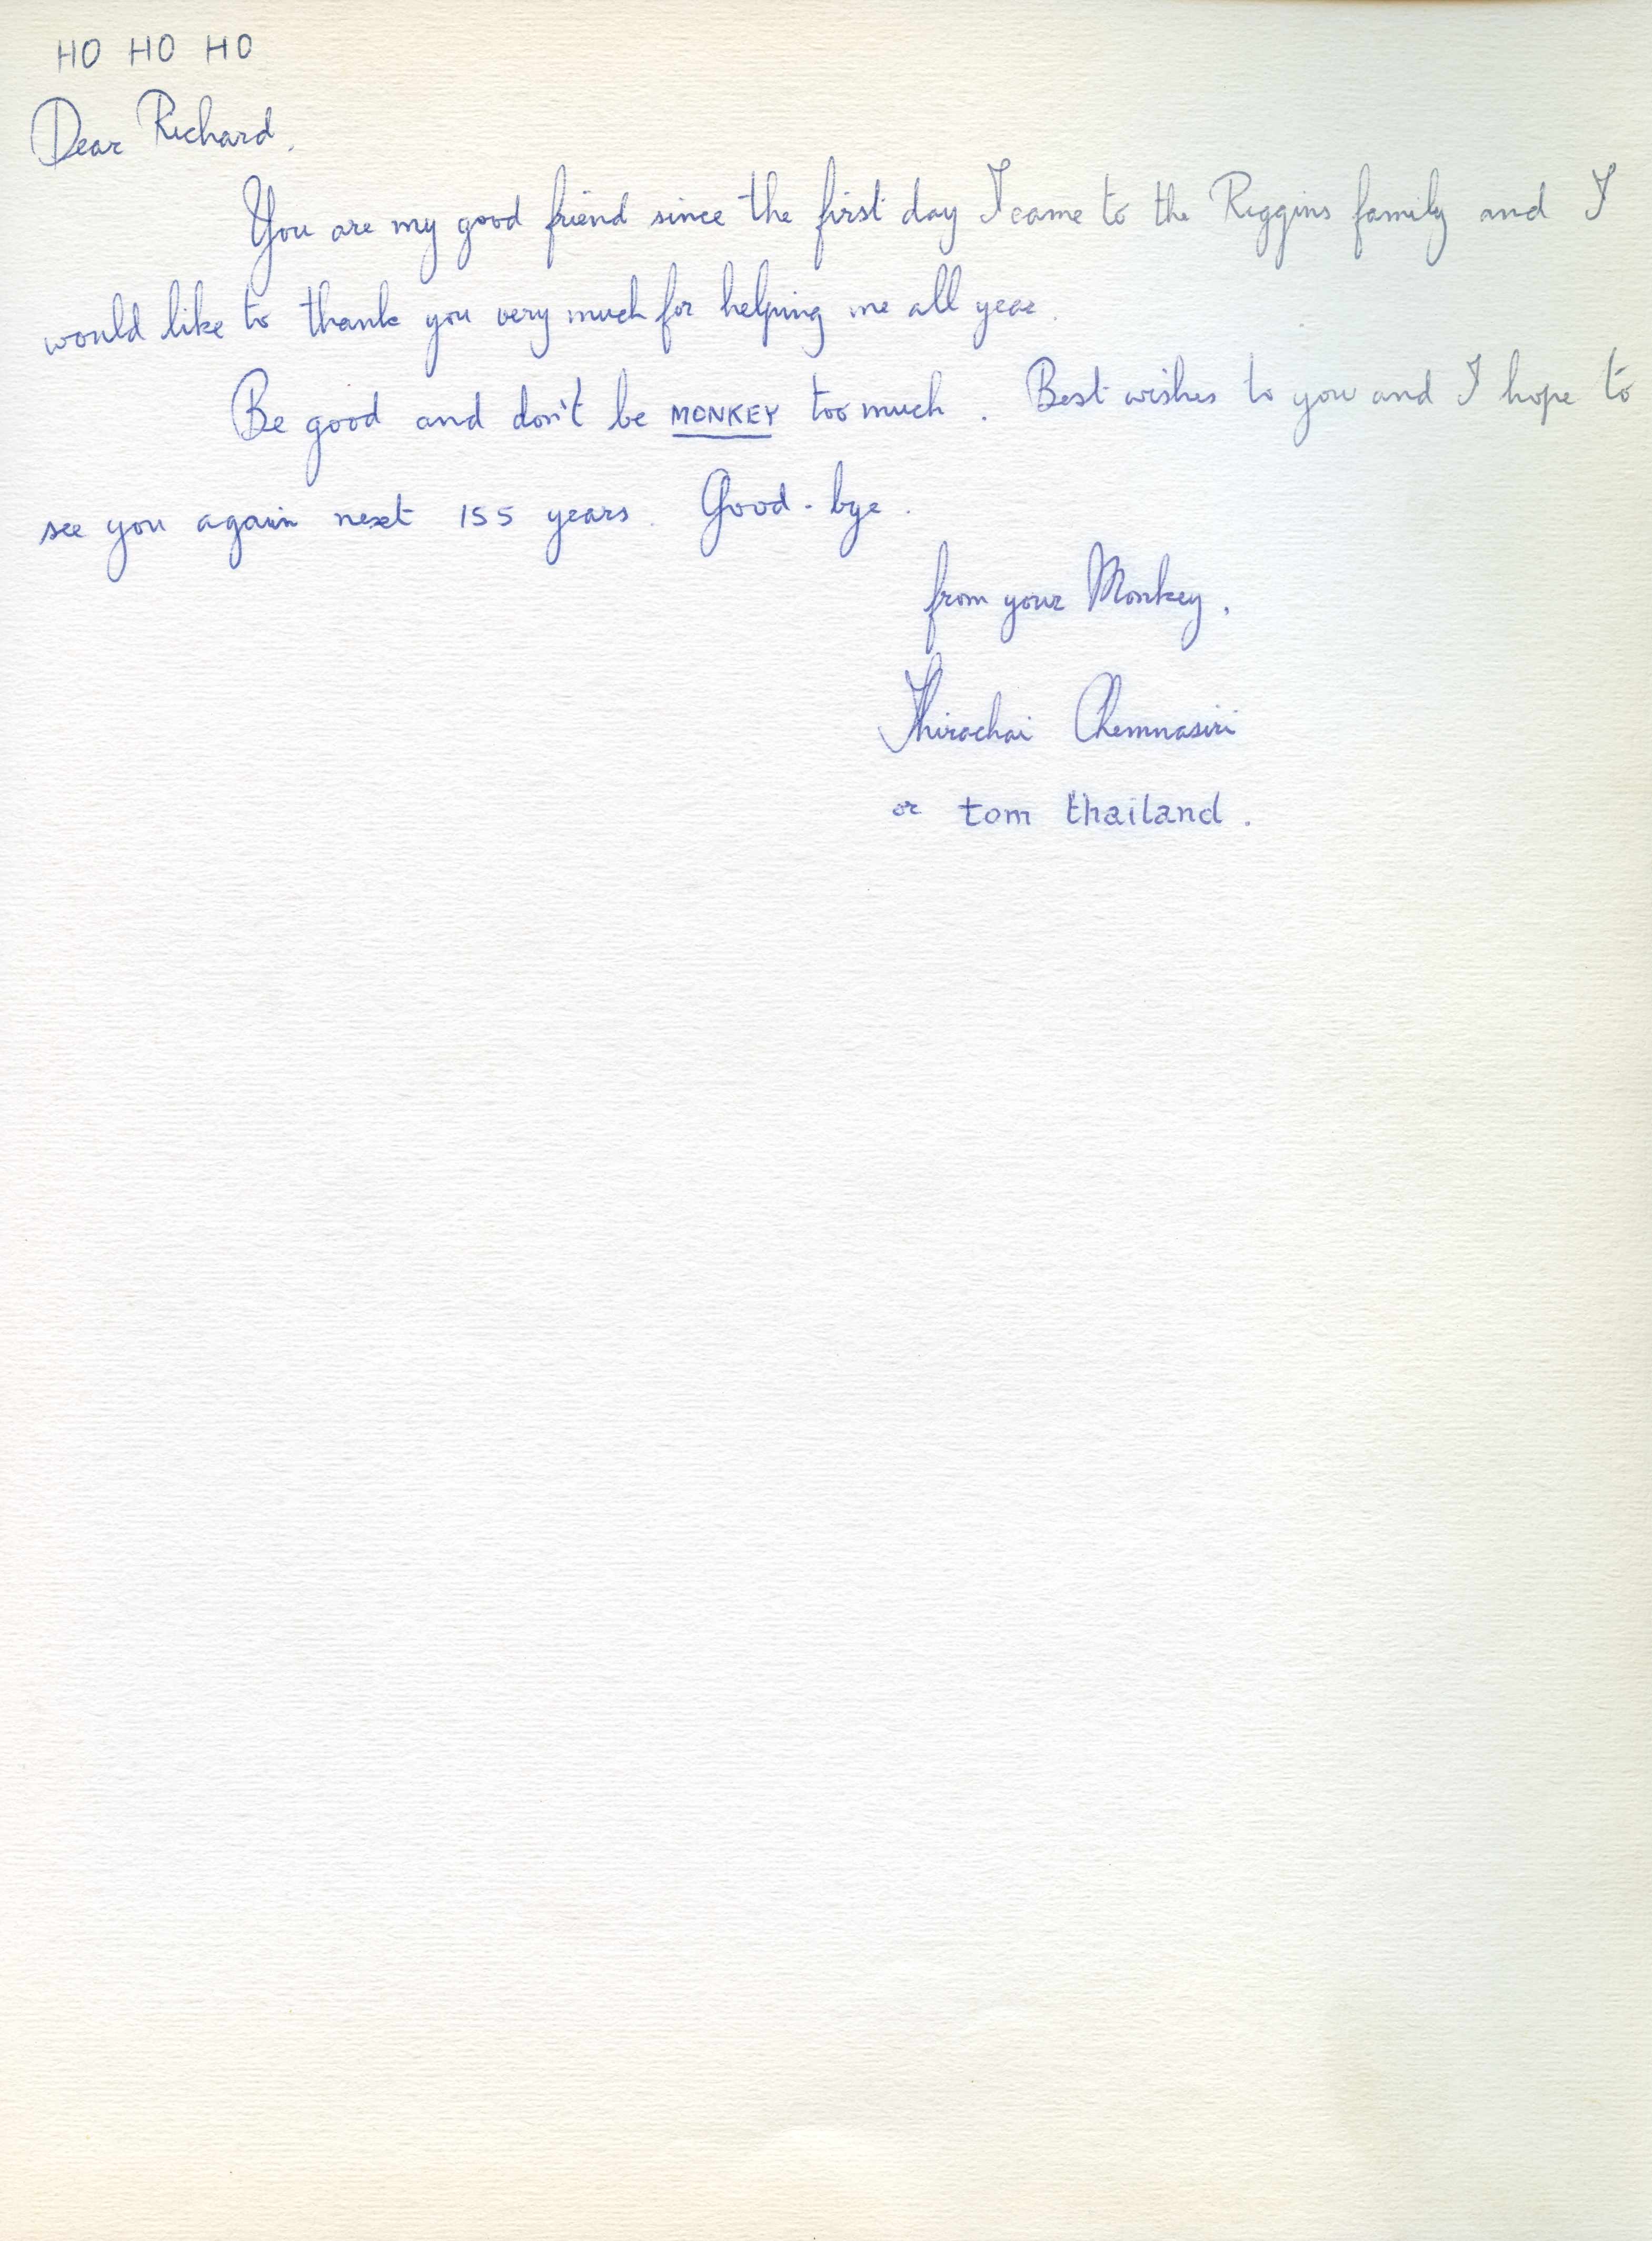 HO HO HO
Dear Richard,
You are my good friend since the first day I came to the Riggins family and I
would like to thank you very much for helping me all year.
Be good and don't be MONKEY too much. Best wishes to you and I hope to
see you again next 155 years. Good-bye.
from your Monkey,
Thirachai Chemnasiri
or tom thailand.